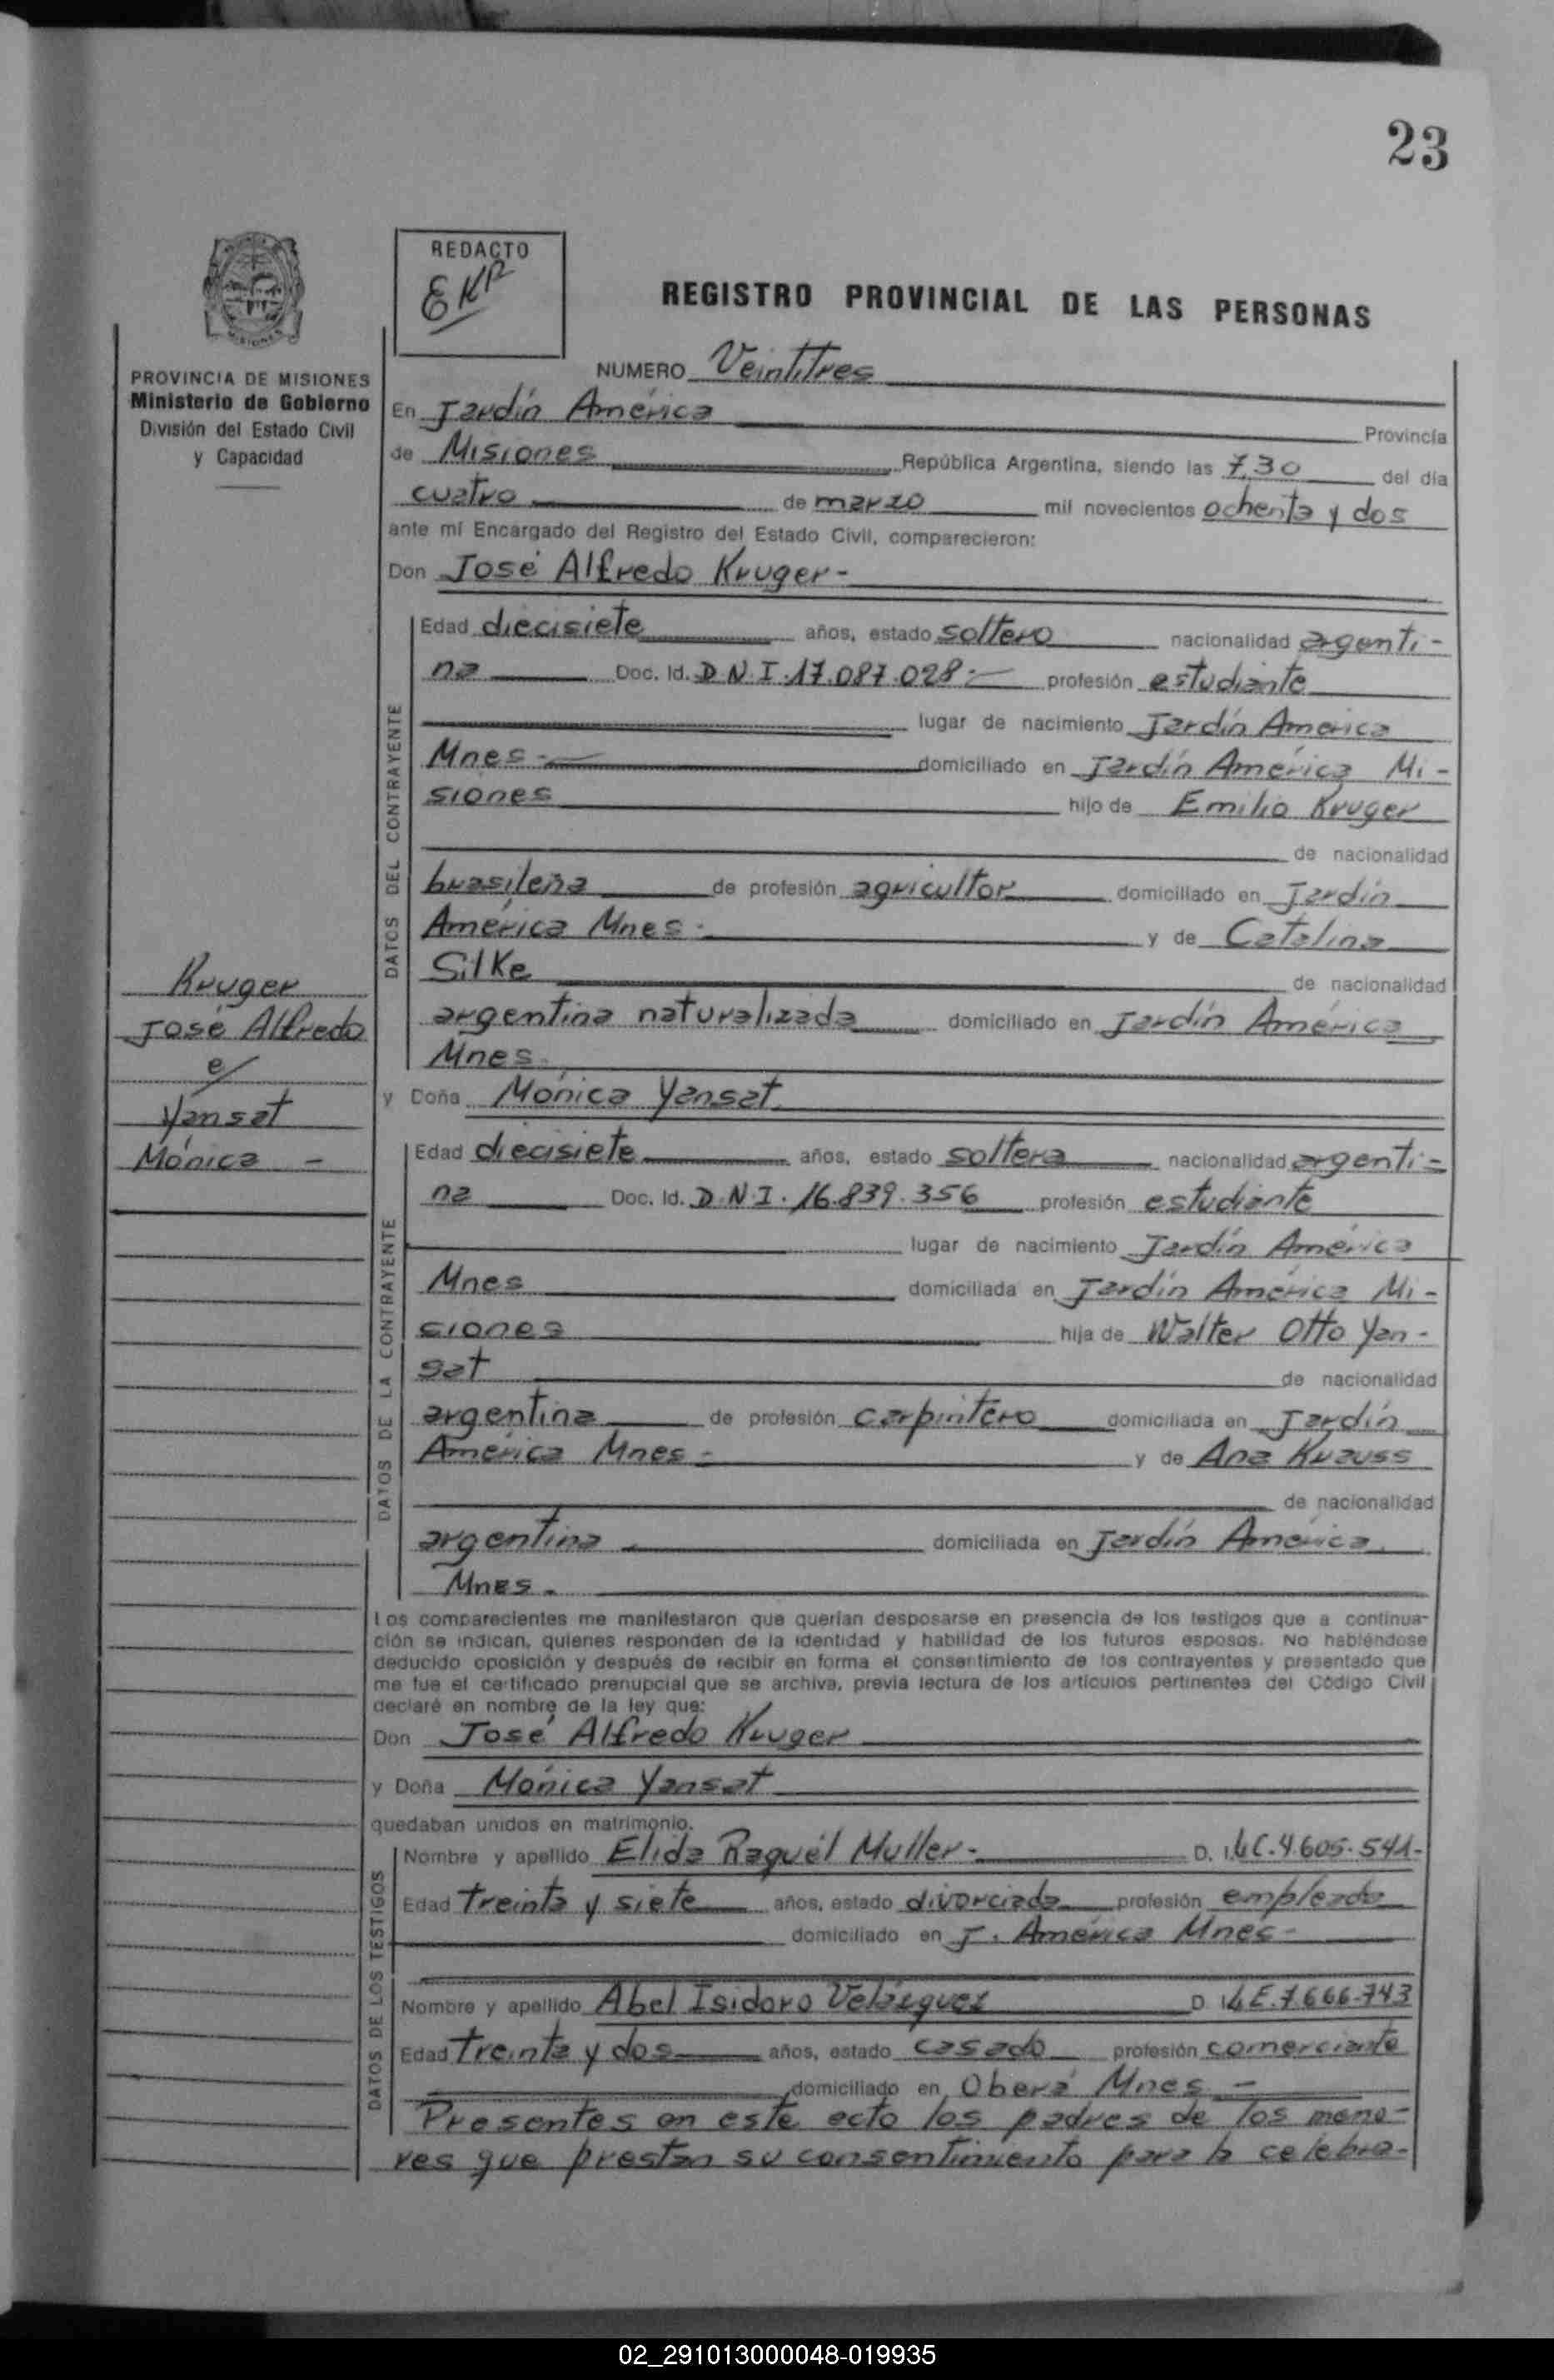 23
REDACTO
EKR
REGISTRO PROVINCIAL DE LAS PERSONAS
PROVINCIA DE MISIONES
Ministerio de Gobierno
División del Estado Civil
y Capacidad
NUMERO Veintitres
En Jardín América Provincia
de Misiones República Argentina, siendo las 7,30 del día
cuatro de marzo mil novecientos ochenta y dos
ante mí Encargado del Registro del Estado Civil, comparecieron:
Don José Alfredo Kruger -
DATOS DEL CONTRAYENTE
Edad diecisiete años, estado soltero nacionalidad argenti-
na Doc. Id. D.N.I. 17.087.028 - profesión estudiante
lugar de nacimiento Jardín América
Mnes - domiciliado en Jardín América Mi-
siones hijo de Emilio Kruger
de nacionalidad
brasileña de profesión agricultor domiciliado en Jardín
América Mnes - y de Catalina
Silke de nacionalidad
argentina naturalizada domiciliado en Jardín América
Mnes.
Kruger
José Alfredo
c/
Yansat
Mónica -
y Doña Mónica Yansat
DATOS DE LA CONTRAYENTE
Edad diecisiete años, estado soltera nacionalidad argenti-
na Doc. Id. D.N.I. 16.839.356 profesión estudiante
lugar de nacimiento Jardín América
Mnes domiciliada en Jardín América Mi-
siones hija de Walter Otto Yan-
sat de nacionalidad
argentina de profesión carpintero domiciliada en Jardín
América Mnes - y de Ana Krauss
de nacionalidad
argentina domiciliada en Jardín América
Mnes -
Los comparecientes me manifestaron que querían desposarse en presencia de los testigos que a continua-
ción se indican, quienes responden de la identidad y habilidad de los futuros esposos. No habiéndose
deducido oposición y después de recibir en forma el consentimiento de los contrayentes y presentado que
me fue el certificado prenupcial que se archiva, previa lectura de los artículos pertinentes del Código Civil
declaré en nombre de la ley que:
Don José Alfredo Kruger
y Doña Mónica Yansat
quedaban unidos en matrimonio.
DATOS DE LOS TESTIGOS
Nombre y apellido Elida Raquel Muller - D. I. LC. 4.605.541-
Edad treinta y siete años, estado divorciada profesión empleada
domiciliado en J. América Mnes -
Nombre y apellido Abel Isidoro Velázquez D. I. LE. 7.666.743
Edad treinta y dos años, estado casado profesión comerciante
domiciliado en Oberá Mnes -
Presentes en este acto los padres de los meno-
res que prestan su consentimiento para la celebra-
02_291013000048-019935